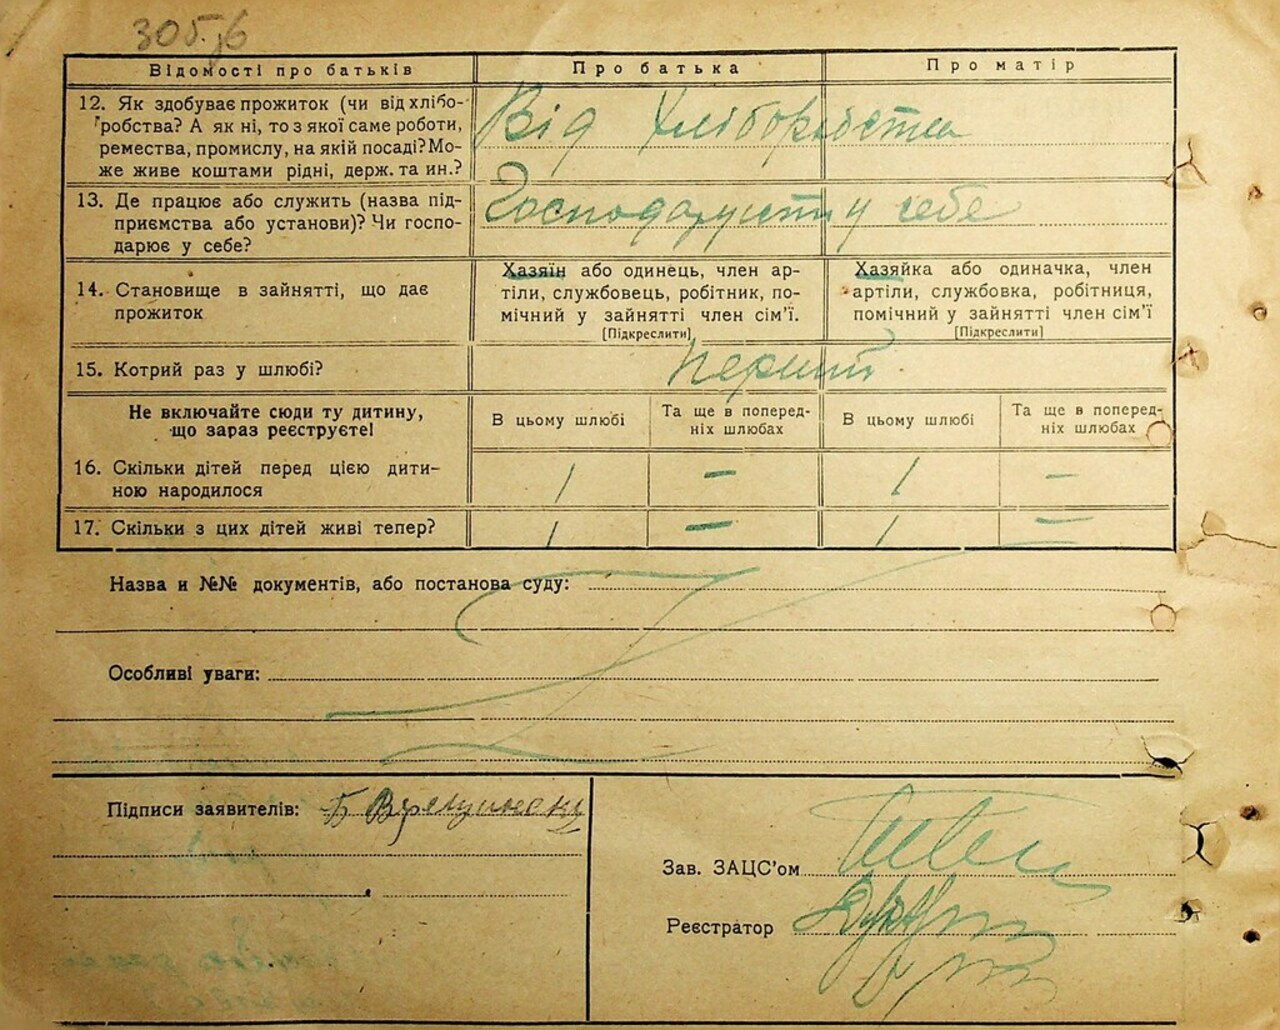 305. 76
Відомості про батьків Про батька Про матір
12. Як здобуває прожиток (чи від хлібо-
робства? А як ні, то з якої саме роботи,
ремества, промислу, на якій посаді? Мо-
же живе коштами рідні, держ. та ин.?
Від хліборобства
13. Де працює або служить (назва під-
приємства або установи)? Чи госпо-
дарює у себе?
у себе
14. Становище в зайнятті, що дає
прожиток
Хазяїн або одинець, член ар-
тіли, службовець, робітник, по-
мічний у зайнятті член сім'ї.
[Підкреслити]
Хазяйка або одиначка, член
артіли, службовка, робітниця,
помічний у зайнятті член сім'ї
[Підкреслити]
15. Котрий раз у шлюбі?
перший
Не включайте сюди ту дитину,
що зараз реєструєте!
В цьому шлюбі
Та ще в поперед-
ніх шлюбах
В цьому шлюбі
Та ще в поперед-
ніх шлюбах
16. Скільки дітей перед цією дити-
ною народилося
1 – 1 –
17. Скільки з цих дітей живі тепер?
1 – 1 –
Назва и №№ документів, або постанова суду:
Особливі уваги:
Підписи заявителів:
Зав. ЗАЦС'ом
Реєстратор